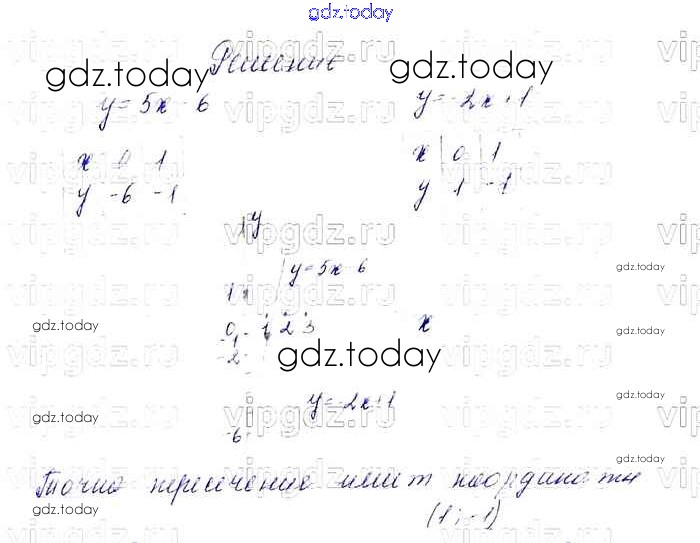 gdz.today
Решение
gdz.today gdz.today
y = 5x - 6 y = -2x + 1
x 0 1 x 0 1
y -6 -1 y 1 -1
y
y = 5x - 6
gdz.today
1
0 1 2 3 x
gdz.today gdz.today
-1
-2
gdz.today
y = -2x + 1
gdz.today
-6
gdz.today
Точка пересечения имеет координаты
(1; -1)
vipgdz.ru